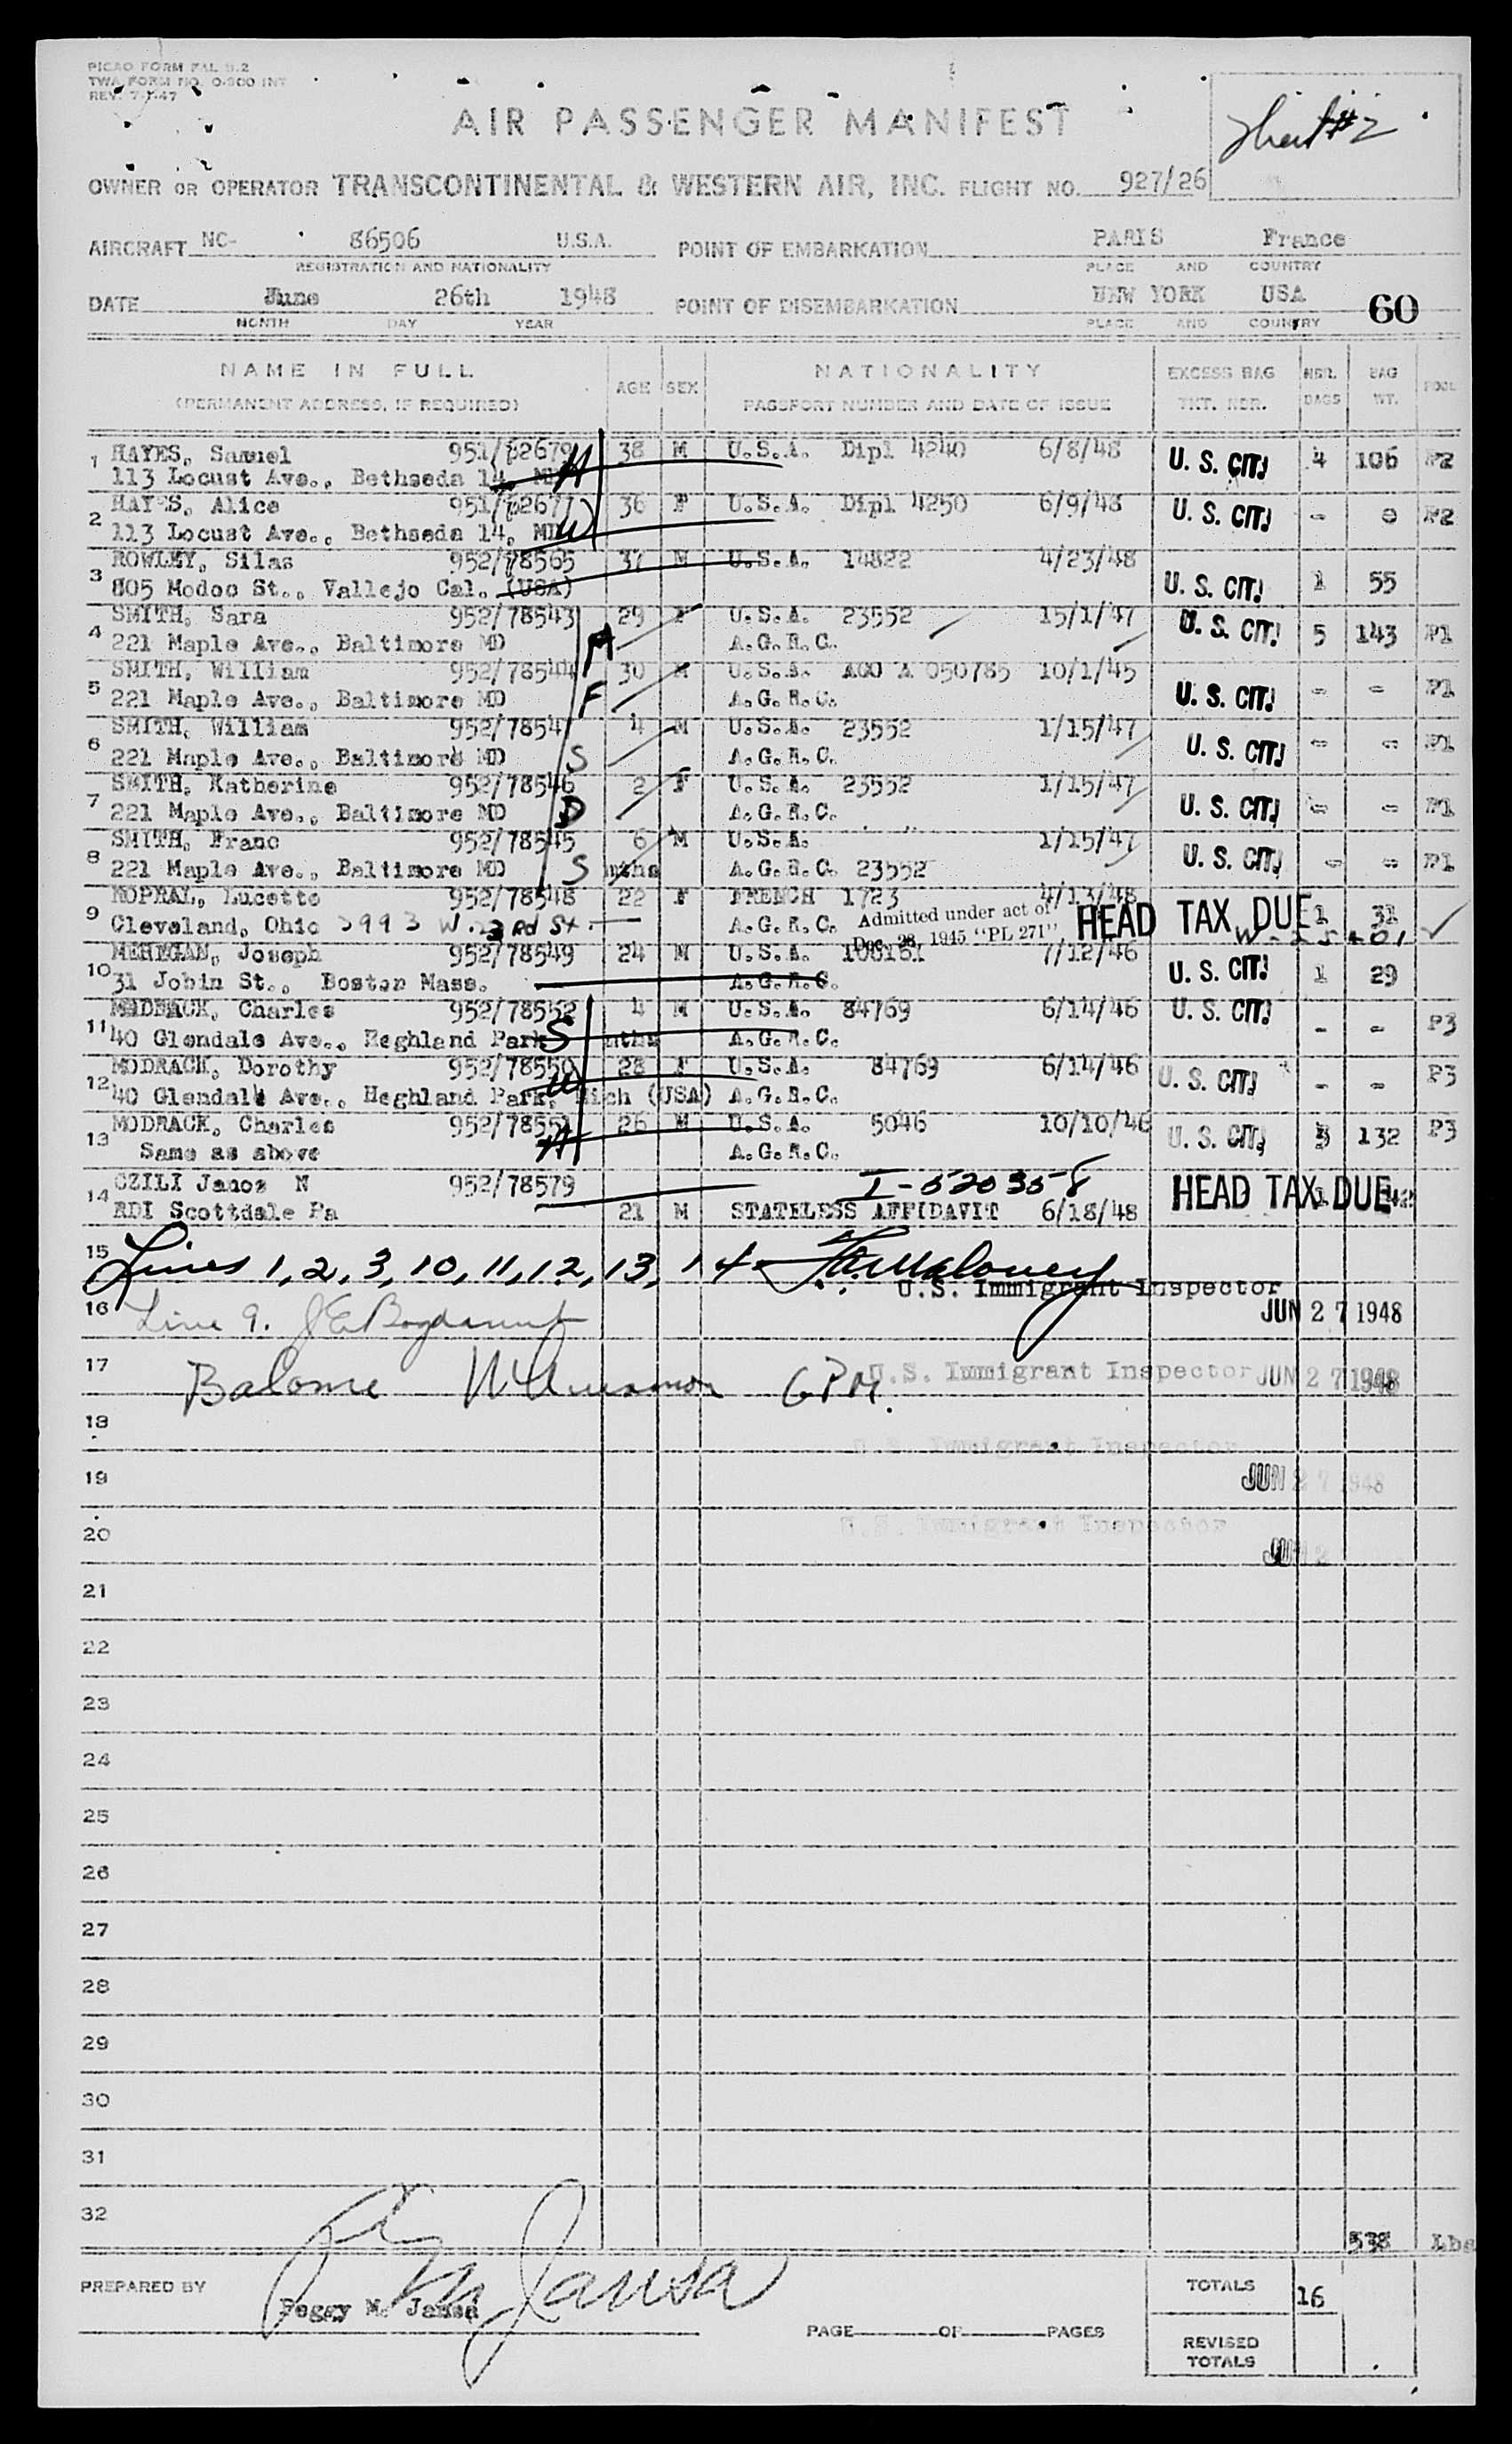 PICAO FORM FAL 9.2
TWA FORM NO. 0-300 INT
REV. 7-1-47
AIR PASSENGER MANIFEST
Sheet #2
OWNER OR OPERATOR TRANSCONTINENTAL & WESTERN AIR, INC. FLIGHT NO. 927/26
AIRCRAFT NC- 86506 U.S.A. POINT OF EMBARKATION PARIS France
REGISTRATION AND NATIONALITY PLACE AND COUNTRY
DATE June 26th 1948 POINT OF DISEMBARKATION NEW YORK USA 60
MONTH DAY YEAR PLACE AND COUNTRY
NAME IN FULL AGE SEX NATIONALITY EXCESS BAG NBR. BAG POOL
(PERMANENT ADDRESS, IF REQUIRED) PASSPORT NUMBER AND DATE OF ISSUE TKT. NBR. BAGS WT.
1 HAYES, Samuel 951/62679 38 M U.S.A. Dipl 4240 6/8/48 U. S. CIT. 4 106 P2
113 Locust Ave., Bethseda 14, MD H
2 HAY S, Alice 951/62677 36 F U.S.A. Dipl 4250 6/9/48 U. S. CIT. - 0 P2
113 Locust Ave., Bethseda 14, MD W
3 ROWLEY, Silas 952/78565 37 M U.S.A. 14822 4/23/48
805 Modoc St., Vallejo Cal. (USA) U. S. CIT. 1 55
4 SMITH, Sara 952/78543 29 F U.S.A. 23552 15/1/47 U. S. CIT. 5 143 P1
221 Maple Ave., Baltimore MD M A.G.R.C.
5 SMITH, William 952/78544 30 M U.S.A. AGO A 050785 10/1/45
221 Maple Ave., Baltimore MD F A.G.R.C. U. S. CIT. - - P1
6 SMITH, William 952/78547 4 M U.S.A. 23552 1/15/47
221 Maple Ave., Baltimore MD S A.G.R.C. U. S. CIT. - - P1
7 SMITH, Katherine 952/78546 2 F U.S.A. 23552 1/15/47
221 Maple Ave., Baltimore MD D A.G.R.C. U. S. CIT. - - P1
8 SMITH, Franc 952/78545 6 M U.S.A. 1/15/47
221 Maple Ave., Baltimore MD S mths A.G.R.C. 23552 U. S. CIT. - - P1
9 NOPRAL, Lucette 952/78548 22 F FRENCH 1723 4/13/48
Cleveland, Ohio 2993 W. 23 Rd St. A.G.R.C. Admitted under act of HEAD TAX DUE 1 31
Dec. 28, 1945 "PL 271"
10 MEHEGAN, Joseph 952/78549 24 M U.S.A. 7/12/46
31 Jobin St., Boston Mass. A.G.R.C. U. S. CIT. 1 29
11 MODRACK, Charles 952/78552 4 M U.S.A. 84769 6/14/46 U. S. CIT.
40 Glendale Ave., Heghland Park S mths A.G.R.C. - - P3
12 MODRACK, Dorothy 952/78550 28 F U.S.A. 84769 6/14/46 U. S. CIT. - - P3
40 Glendale Ave., Heghland Park, Mich (USA) A.G.R.C. W
13 MODRACK, Charles 952/78551 26 M U.S.A. 5046 10/10/46 U. S. CIT. 3 132 P3
Same as above H A.G.R.C.
14 CZILI Janos N 952/78579 I-520358 HEAD TAX DUE 1 42
RDI Scottdale Pa 21 M STATELESS AFFIDAVIT 6/18/48
15 Lines 1, 2, 3, 10, 11, 12, 13, 14
U.S. Immigrant Inspector
16 Line 9. JUN 27 1948
17 U.S. Immigrant Inspector JUN 27 1948
Balome GPM.
18
U.S. Immigrant Inspector
19 JUN 27 1948
20 U.S. Immigrant Inspector
JUN 2
21
22
23
24
25
26
27
28
29
30
31
32
538 Lbs
PREPARED BY Peggy M. Jansa
P M Jansa
TOTALS 16
PAGE OF PAGES
REVISED
TOTALS